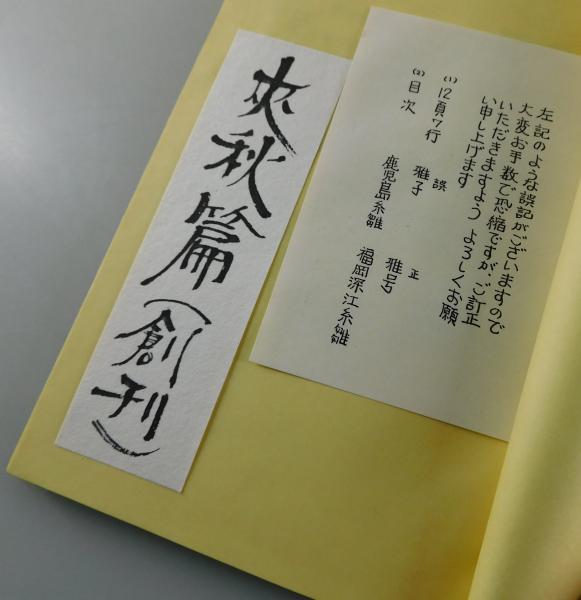 左記のような誤記がございますので
大変お手数で恐縮ですが、ご訂正
いただきますよう よろしくお願
い申し上げます
誤 正
(1) 12頁7行 雅子 雅号
(2) 目次 鹿児島糸雛 福岡深江糸雛
爽秋篇(創刊)